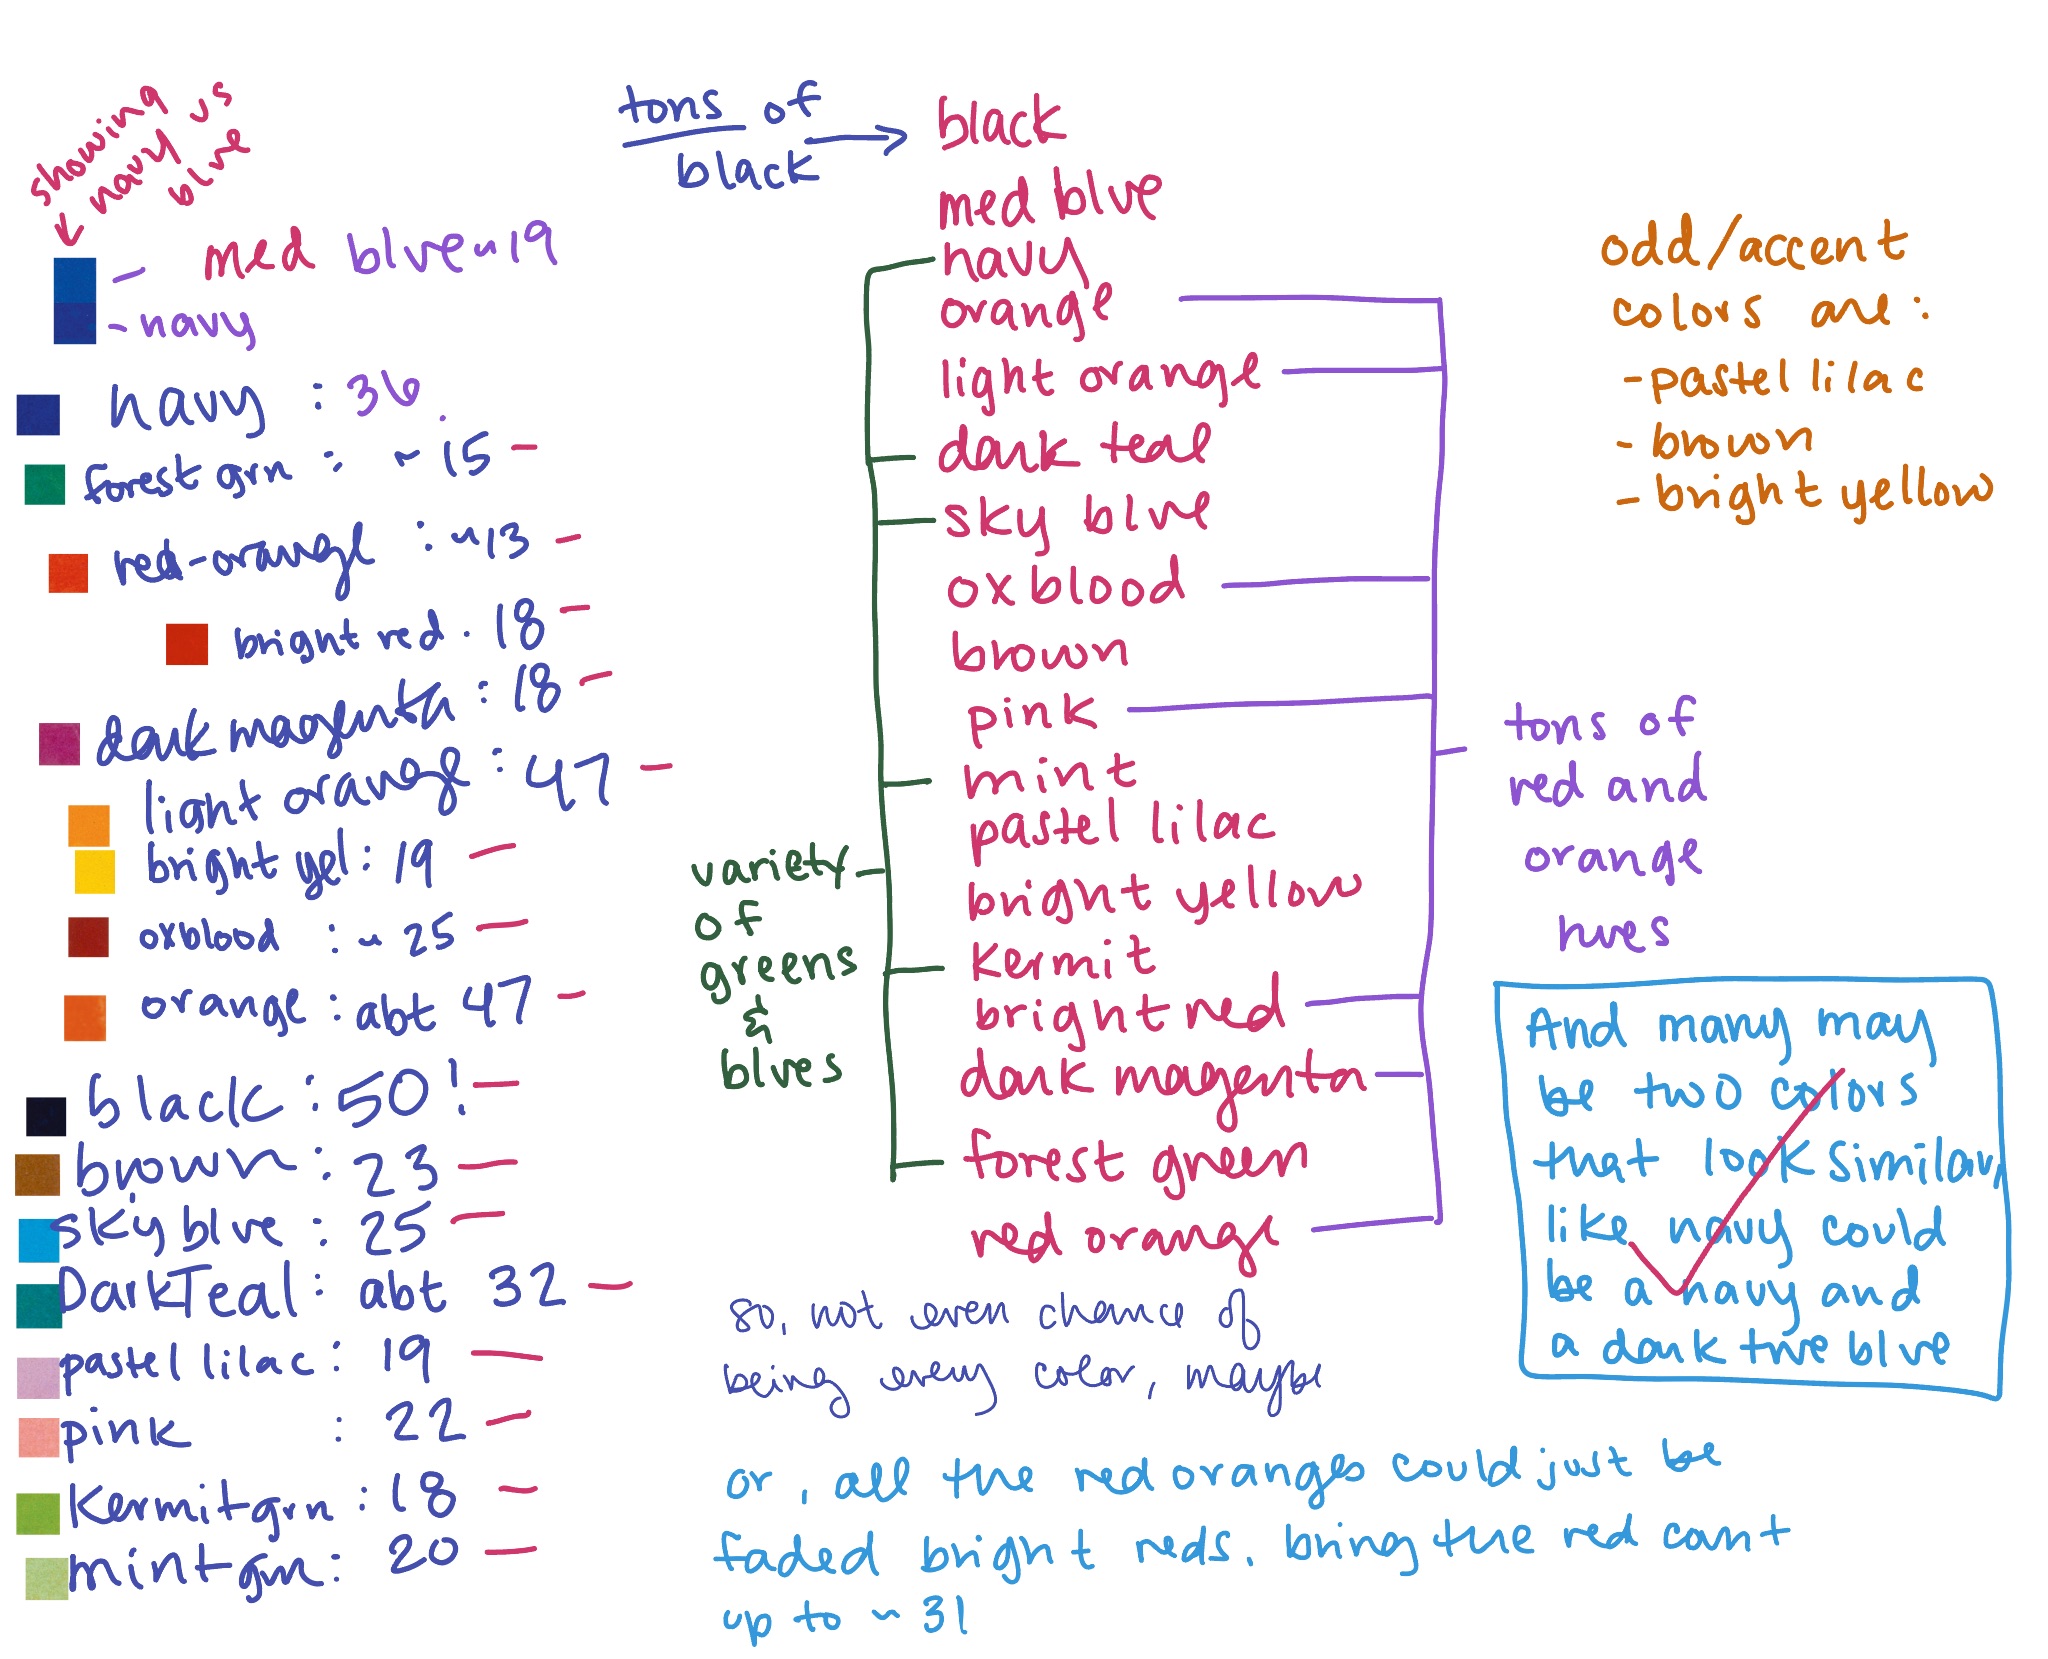 showing
navy vs
blue
med blue ~ 19
- navy
navy : 36
forest grn : ~ 15 -
red-orange : ~13 -
bright red . 18 -
dark magenta : 18 -
light orange : 47 -
bright yel : 19 -
oxblood : ~ 25 -
orange : abt 47 -
black : 50! -
brown : 23 -
sky blue : 25 -
Dark Teal : abt 32 -
pastel lilac : 19 -
pink : 22 -
Kermit grn : 18 -
mint grn : 20 -
tons of
black
black
med blue
navy
orange
light orange
dark teal
sky blue
oxblood
brown
pink
mint
pastel lilac
bright yellow
Kermit
bright red
dark magenta
forest green
red orange
variety
of
greens
&
blues
so, not even chance of
being every color, maybe
or, all the red oranges could just be
faded bright reds. bring the red count
up to ~ 31
odd/accent
colors are :
- pastel lilac
- brown
- bright yellow
tons of
red and
orange
hues
And many may
be two colors
that look similar,
like navy could
be a navy and
a dark true blue